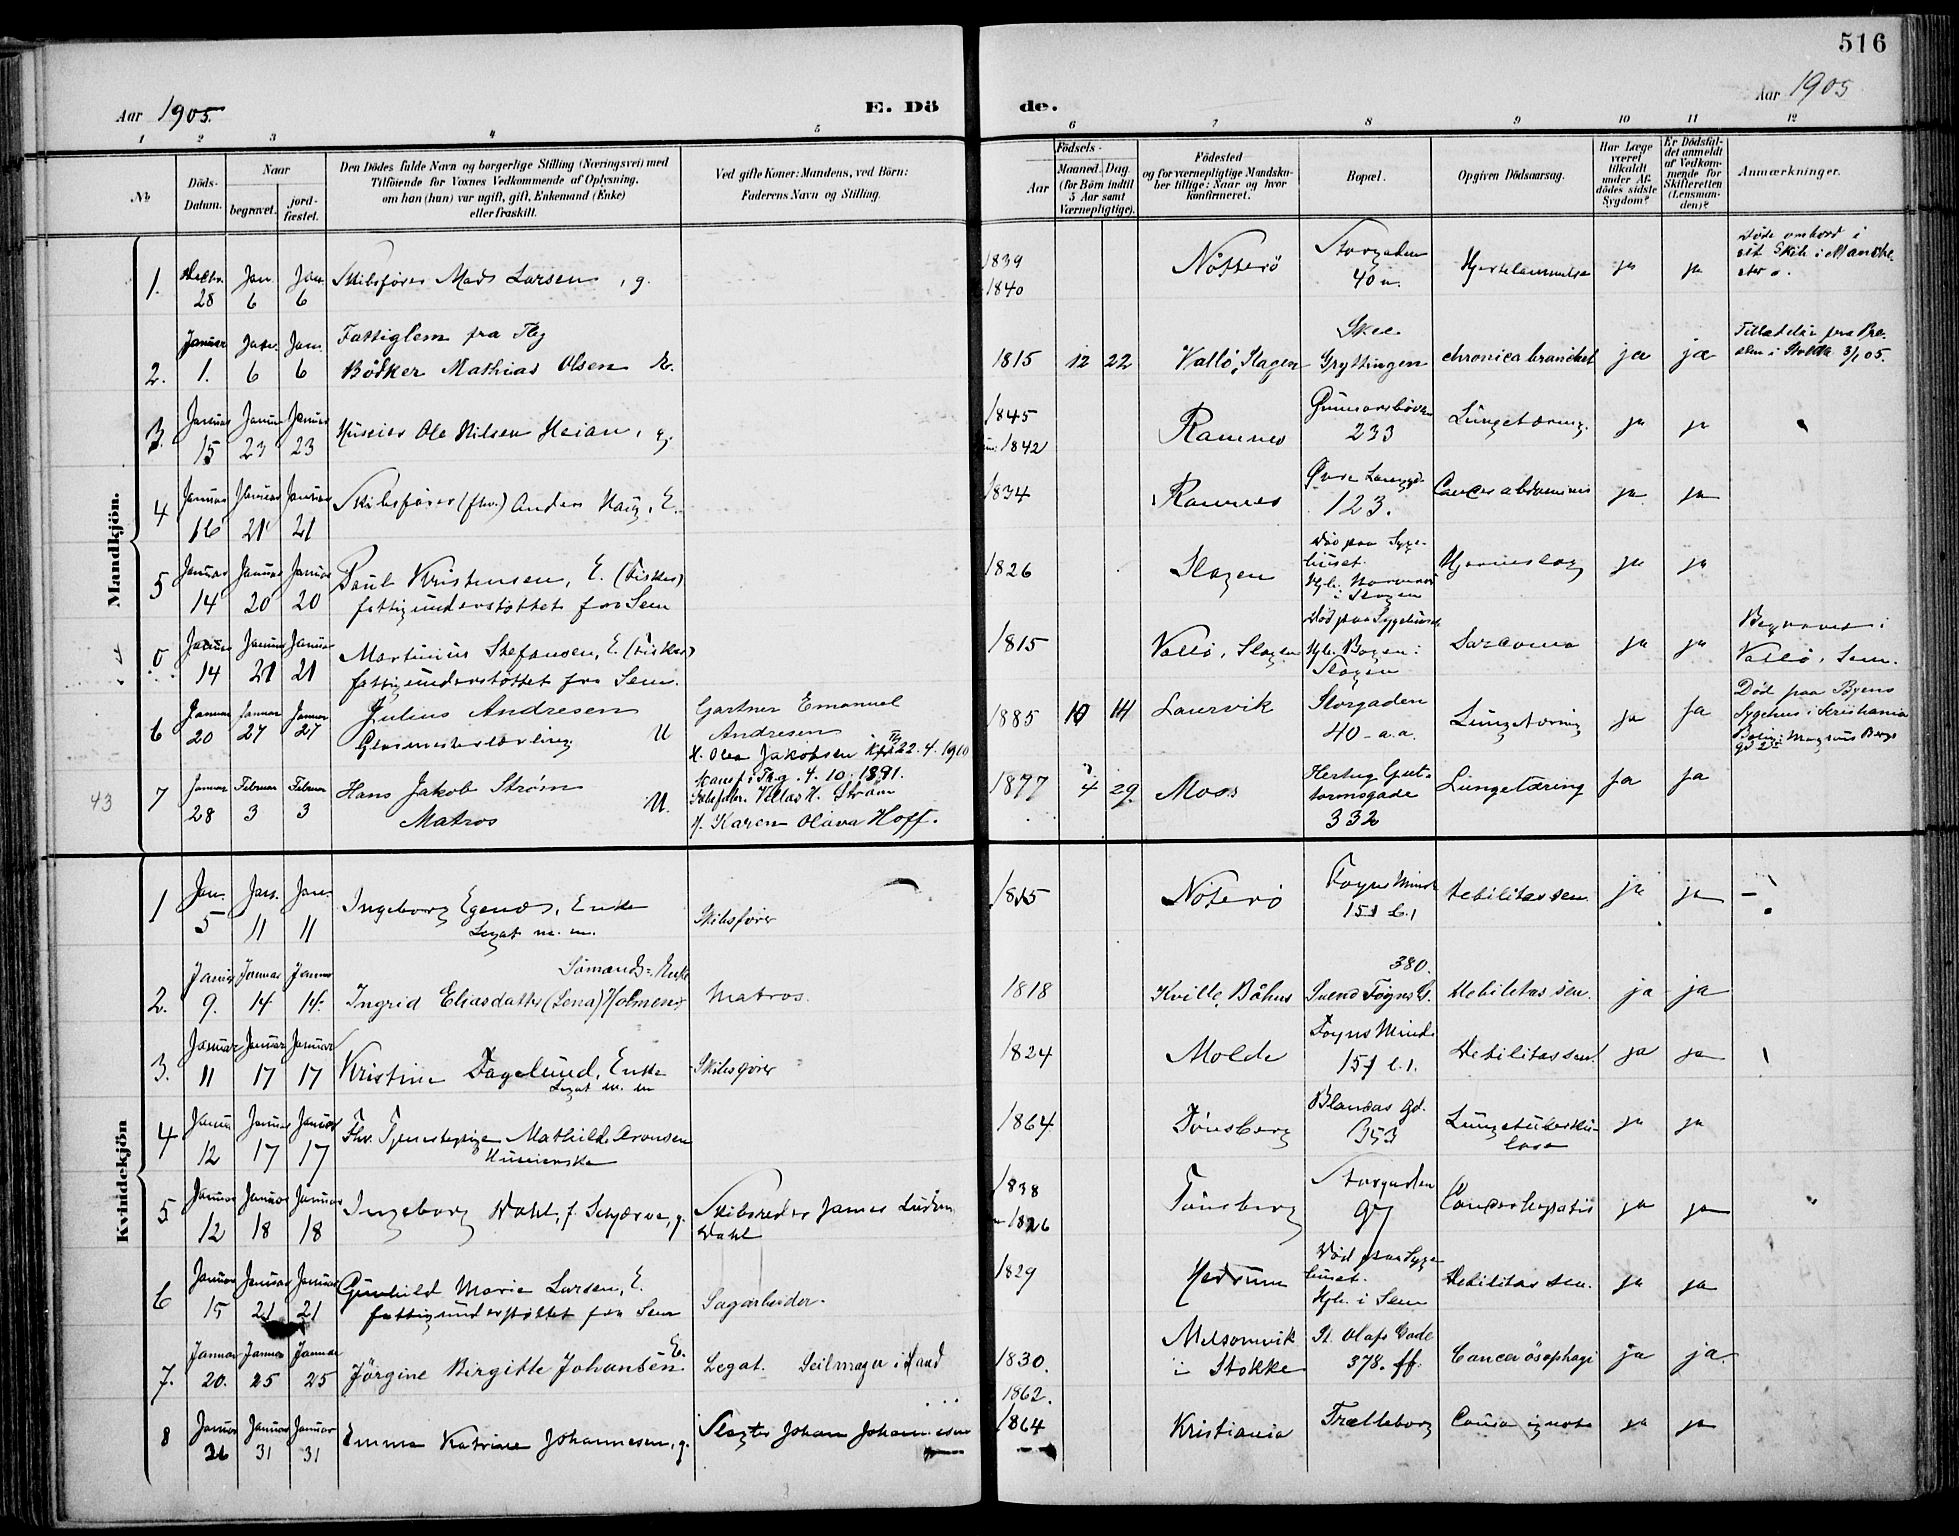 516
Aar 1905.
E. Dö
de.
Aar 1905
1 2 3 4 5 6 7 8 9 10 11 12
№
Döds-Datum.
Naar
begravet.
jord-fæstet.
Den Dödes fulde Navn og borgerlige Stilling (Næringsvei) med
Tilföiende for Voxnes Vedkommende af Oplysning,
om han (hun) var ugift, gift, Enkemand (Enke)
eller fraskilt.
Ved gifte Koner: Mandens, ved Börn:
Faderens Navn og Stilling.
Födsels-
Aar
Maaned.
Dag.
(for Börn indtil
5 Aar samt
Værnepligtige).
Födested
og for værnepligtige Mandska-
ber tillige: Naar og hvor
konfirmeret.
Bopæl.
Opgiven Dödsaarsag.
Har Læge
været
tilkaldt
under Af-
dödes sidste
Sygdom?
Er Dödsfal-
det anmeldt
af Vedkom-
mende for
Skifteretten
(Lensman-
den)?
Anmærkninger.
Mandkjön.
1. Decbr. 28 Jan. 6 Jan. 6 Skibsfører Mads Larsen, g. 1839 1840 Nøtterø Storgaden 40 u. Hjertelammelse ja ja Døde ombord i sit Skib i Manche-ster.
2. Januar 1. Jan. 6 Jan. 6 Fattiglem fra Tbg Bödker Mathias Olsen E. 1815 12 22 Vallö, Slagen Skee Gryttingen chronica branchit ja ja 3/1 05.
3. Januar 15 Januar 23 Januar 23 Huseier Ole Nilsen Heian, g. 1845 1842 Ramnes Gunnarsbøvei 233 Lungetæring. ja ja
4 Januar 16 Januar 21 Januar 21 Skibsfører (fhv.) Anders Haug, E. 1834 Ramnes Øvre Langgd. 123. Cancer abdominis ja ja
5 Januar 14 Januar 20 Januar 20 Paul Kristensen, E. (Fisker) fattigunderstøttet fra Sem 1826 Slagen Død paa Syge-huset. Hjh. i Slagen Hjerneslag ja ja
Januar 14 Januar 21 Januar 21 Martinius Stefansen, E. (Fisker) fattigunderstøttet fra Sem. 1815 Vallö, Slagen Død paa Sygehuset Hjh. Bogen i Slagen Sarcoma ja ja Begravet i Vallö, Sem.
6 Januar 20 Januar 27 Januar 27 Julius Andresen Glasmesterlærling U Gartner Emanuel Andresen 1885 10 14 Laurvik Storgaden 40-a.a. Lungetæring ja ja Død paa Byens Sygehus i Kristiania
M. Olea Jakobsen 22.4.1910
4.10.1891.
43
7 Januar 28 Februar 3 Februar 3 Hans Jakob Strøm Matros U. Skibsfører. H. Strøm M. Karen Olava Hoff. 1877 4 29 Moss Hertug Gut-tormsgade 332 Lungetæring ja ja
Kvindekjön
1 Jan. 5 Jan. 11 Jan. 11 Ingeborg Egenæs, Enke Legat m. m. Skibsfører 1815 Nöterö Foyns Minde 151 b.1 Debilitas sen. ja ja
2. Januar 9. Januar 14 Januar 14. Sömands-Enke Ingrid Eliasdatter (Lena) Holmen Matros. 1818 Kville, Båhus 380. Svend Foyns G. Debilitas sen. ja ja
3. Januar 11 Januar 17 Januar 17 Kristine Fagelund, Enke Legat m. m Skibsfører 1824 Molde Foyns Minde 151 b.1. Debilitas sen. ja ja
4 Januar 12 Januar 17 Januar 17 Fhv. Tjenestepige Mathilde Aronsen Huseierske 1864 Tønsberg gd. 353 Lungetuberku-lose ja ja
5 Januar 12 Januar 18 Januar 18 Ingeborg Dahl, f. Schjærve, g. Skibsreder James Dahl 1838 1826 Tønsberg Storgaden 97 Cancer hepatis ja ja
6 Januar 15 Januar 21 Januar 21 Gunhild Marie Larsen, E. fattigunderstøttet fra Sem Sagarbeider. 1829 Hedrum Død paa Syge-huset. Hjh. i Sem Debilitas sen. ja ja
7. Januar 20. Januar 25 Januar 25 Jörgine Birgitte Johansen E. Legat. Seilmager i Land 1830. Melsomvik i Stokke St. Olafs Gade 378. ff. Cancer ösophagi ja ja.
8 Januar 26 Januar 31 Januar 31 Emma Katrine Johannesen, g. Slagter Johan Johannesen 1862. 1864 Kristiania Trælleborg Causa ignota ja ja